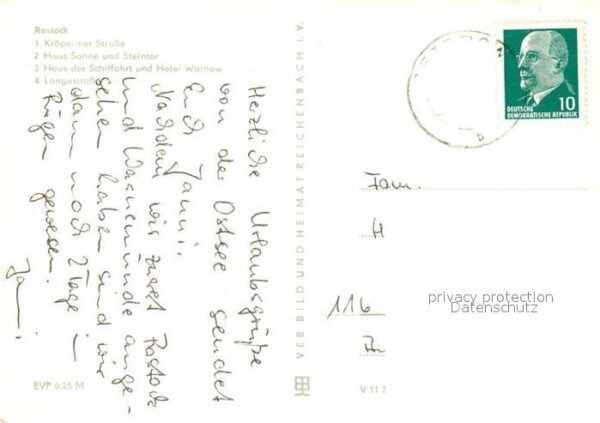 Rostock
1 Kröpeliner Straße
2 Haus Sonne und Steintor
3 Haus der Schiffahrt und Hotel Warnow
4 Langestraße
Herzliche Urlaubsgrüße
von der Ostsee sendet
Euch
Nachdem wir zuerst Rostock
und Warnemünde ange-
sehen haben sind wir
dann noch 2 Tage i
Rügen gewesen.
EVP 0,25 M
VEB BILD UND HEIMAT REICHENBACH I. V.
DEUTSCHE
DEMOKRATISCHE REPUBLIK
10
Fam.
H
116
privacy protection
Datenschutz
V 11